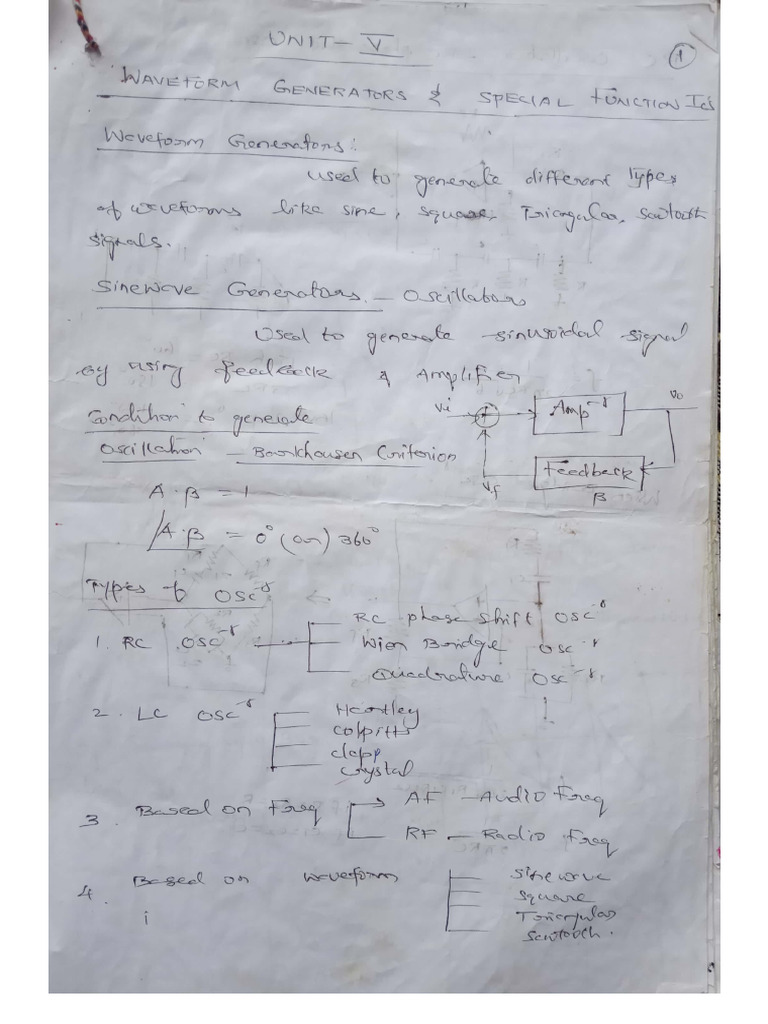 UNIT-V
1
WAVEFORM GENERATORS & SPECIAL FUNCTION ICs
Waveform Generators:
used to generate different Types
of waveforms like sine, square, Triangular, sawtooth
signals.
Sinewave Generators - Oscillators
Used to generate sinusoidal signal
by using feedback & Amplifier
Condition to generate
Oscillation - Barkhausen Criterion
Vi
+
Amp-r
Vo
Feedback
β
Vf
A.β = 1
∠A.β = 0° (or) 360°
Types of OSC-r
1. RC OSC-r
RC phase shift OSC-r
Wien Bridge OSC-r
Quadrature OSC-r
2. LC OSC-r
Hartley
colpitts
clapp
crystal
3. Based on Freq
AF - Audio Freq
RF - Radio Freq
4. Based on waveform
sinewave
square
Triangular
sawtooth.
i